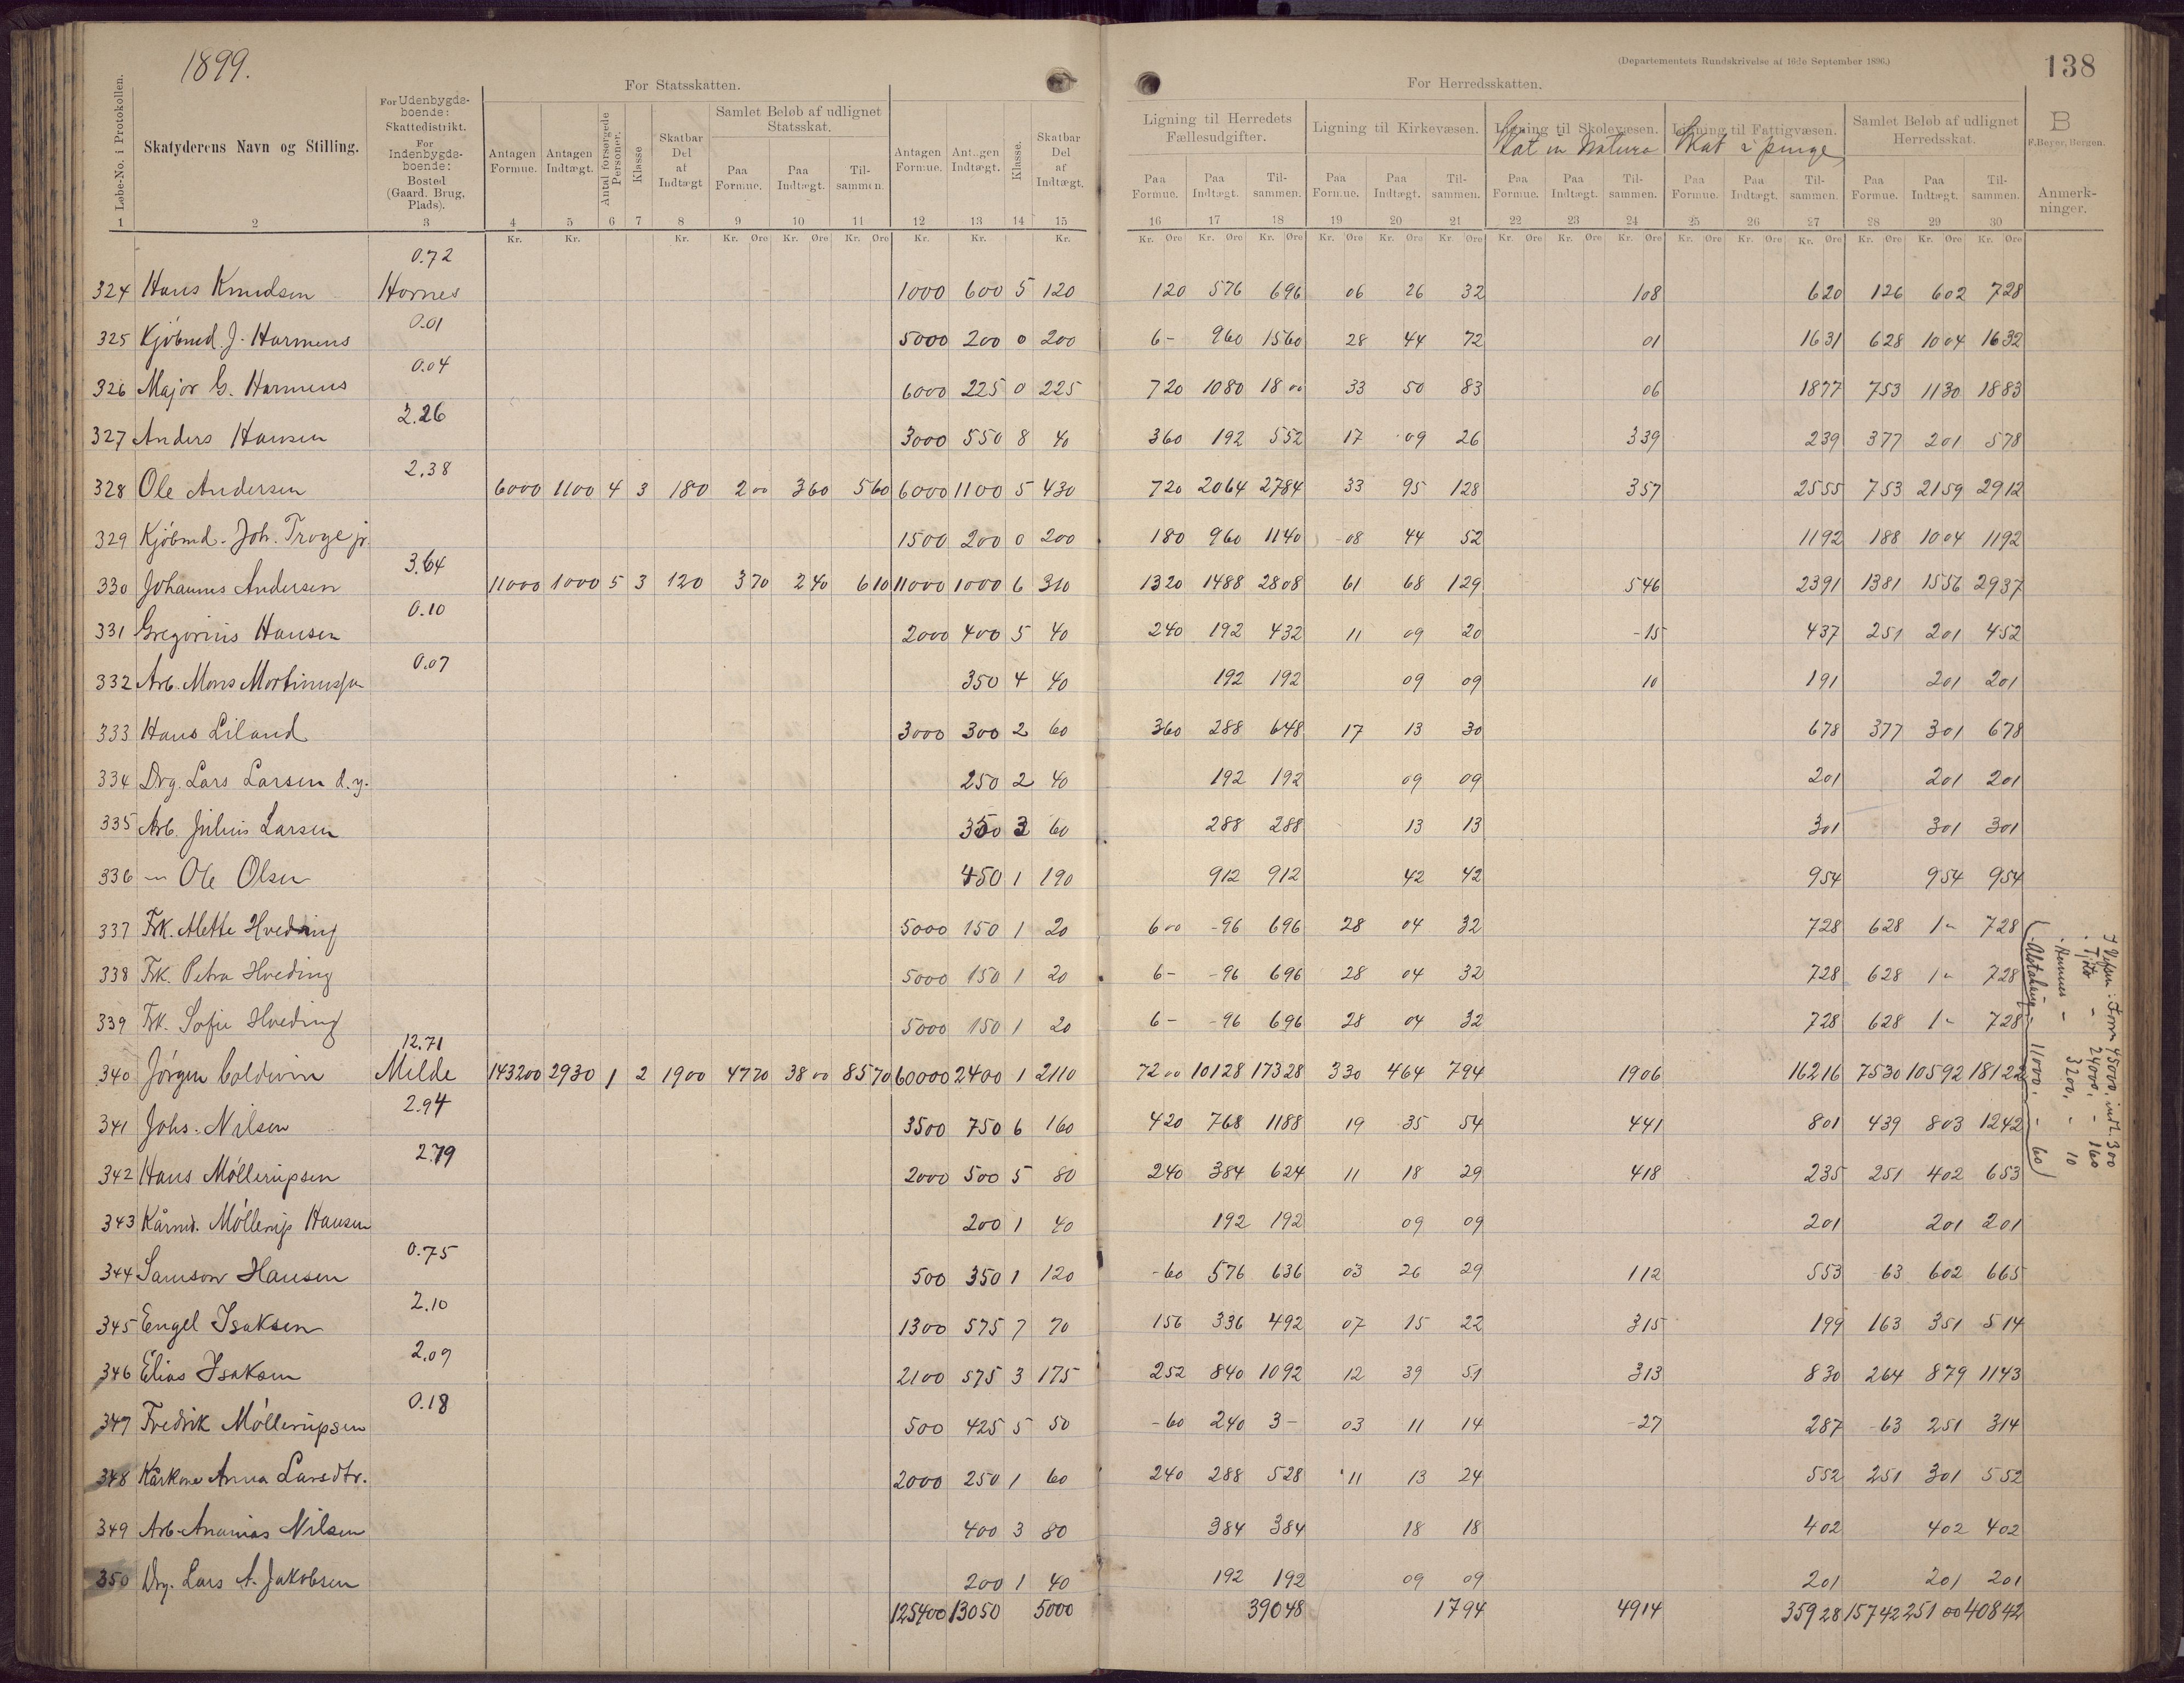 1899.
138
(Departementets Rundskrivelse af 16de September 1896.)
For Statsskatten.
For Herredsskatten.
Løbe-No. i Protokollen.
Skatyderens Navn og Stilling.
For Udenbygdsboende: Skattedistrikt. For Indenbygdsboende: Bosted (Gaard, Brug, Plads).
Antagen Formue.
Antagen Indtægt.
Antal forsørgede Personer.
Klasse
Skatbar Del af Indtægt
Samlet Beløb af udlignet Statsskat.
Paa Formue. Paa Indtægt. Tilsammen.
Antagen Formue.
Antagen Indtægt.
Klasse.
Skatbar Del af Indtægt.
Ligning til Herredets Fællesudgifter.
Paa Formue. Paa Indtægt. Tilsammen.
Ligning til Kirkevæsen.
Paa Formue. Paa Indtægt. Tilsammen.
Ligning til Skolevæsen.
Skat in Natura
Paa Formue. Paa Indtægt. Tilsammen.
Ligning til Fattigvæsen.
Skat i penge
Paa Formue. Paa Indtægt. Tilsammen.
Samlet Beløb af udlignet Herredsskat.
Paa Formue. Paa Indtægt. Tilsammen.
B
F. Beyer, Bergen.
Anmerkninger.
1 2 3 4 5 6 7 8 9 10 11 12 13 14 15 16 17 18 19 20 21 22 23 24 25 26 27 28 29 30
Kr. Kr. Kr. Kr. Øre Kr. Øre Kr. Øre Kr. Kr. Kr. Kr. Øre Kr. Øre Kr. Øre Kr. Øre Kr. Øre Kr. Øre Kr. Øre Kr. Øre Kr. Øre Kr. Øre Kr. Øre Kr. Øre Kr. Øre Kr. Øre Kr. Øre
0.72
324 Hans Knudsen Hornes 1000 600 5 120 120 576 696 06 26 32 108 620 126 602 728
0.01
325 Kjöbmd. J. Harmens 5000 200 0 200 6- 960 1560 28 44 72 01 1631 628 1004 1632
0.04
326 Major G. Harmens 6000 225 0 225 720 1080 18 00 33 50 83 06 1877 753 1130 1883
2.26
327 Anders Hansen 3000 550 8 40 360 192 552 17 09 26 339 239 377 201 578
2.38
328 Ole Andersen 6000 1100 4 3 180 2 00 360 560 6000 1100 5 430 720 2064 2784 33 95 128 357 2555 753 2159 2912
329 Kjöbmd. Joh. Troye jr. 1500 200 0 200 180 960 1140 -08 44 52 1192 188 1004 1192
3.64
330 Johannes Andersen 11000 1000 5 3 120 370 240 610 11000 1000 6 310 1320 1488 2808 61 68 129 546 2391 1381 1556 2937
0.10
331 Gregorius Hansen 2000 400 5 40 240 192 432 11 09 20 -15 437 251 201 452
0.07
332 Arb. Mons Mortinussen 350 4 40 192 192 09 09 10 191 201 201
333 Hans Liland 3000 300 2 60 360 288 648 17 13 30 678 377 301 678
334 Drg. Lars Larsen d.y. 250 2 40 192 192 09 09 201 201 201
335 Arb. Julius Larsen 350 3 60 288 288 13 13 301 301 301
336 -"- Ole Olsen 450 1 190 912 912 42 42 954 954 954
337 Frk. Alette Hvedning 5000 150 1 20 6 00 -96 696 28 04 32 728 628 1- 728
338 Frk. Petra Hveding 5000 150 1 20 6- -96 696 28 04 32 728 628 1- 728
339 Frk. Sofie Hveding 5000 150 1 20 6- -96 696 28 04 32 728 628 1- 728
12.71
340 Jörgen Coldevin Milde 143200 2930 1 2 1900 4770 38 00 8570 60000 2400 1 2110 72 00 10128 17328 330 464 794 1906 16216 7530 10592 18122
2.94
341 Johs. Nilsen 3500 750 6 160 420 768 1188 19 35 54 441 801 439 803 1242
2.79
342 Hans Möllerupsen 2000 500 5 80 240 384 624 11 18 29 418 235 251 402 653
343 Kårmd. Möllerup Hansen 200 1 40 192 192 09 09 201 201 201
0.75
344 Samson Hansen 500 350 1 120 -60 576 636 03 26 29 112 553 -63 602 665
2.10
345 Engel Isaksen 1300 575 7 70 156 336 492 07 15 22 315 199 163 351 514
2.09
346 Elias Isaksen 2100 575 3 175 252 840 1092 12 39 51 313 830 264 879 1143
0.18
347 Fredrik Möllerupsen 500 425 5 50 -60 240 3- 03 11 14 -27 287 -63 251 314
348 Kårkone Anna Larsdtr. 2000 250 1 60 240 288 528 11 13 24 552 251 301 552
349 Arb. Ananias Nilsen 400 3 80 384 384 18 18 402 402 402
350 Drg. Lars A. Jakobsen 200 1 40 192 192 09 09 201 201 201
125400 13050 5000 39048 1794 4914 359 28 157 42 251 00 408 42
Form 45000, indt. 300
Tjøtta - 24000, - 160
3200, - 10
Alstahaug - 11000, - 60